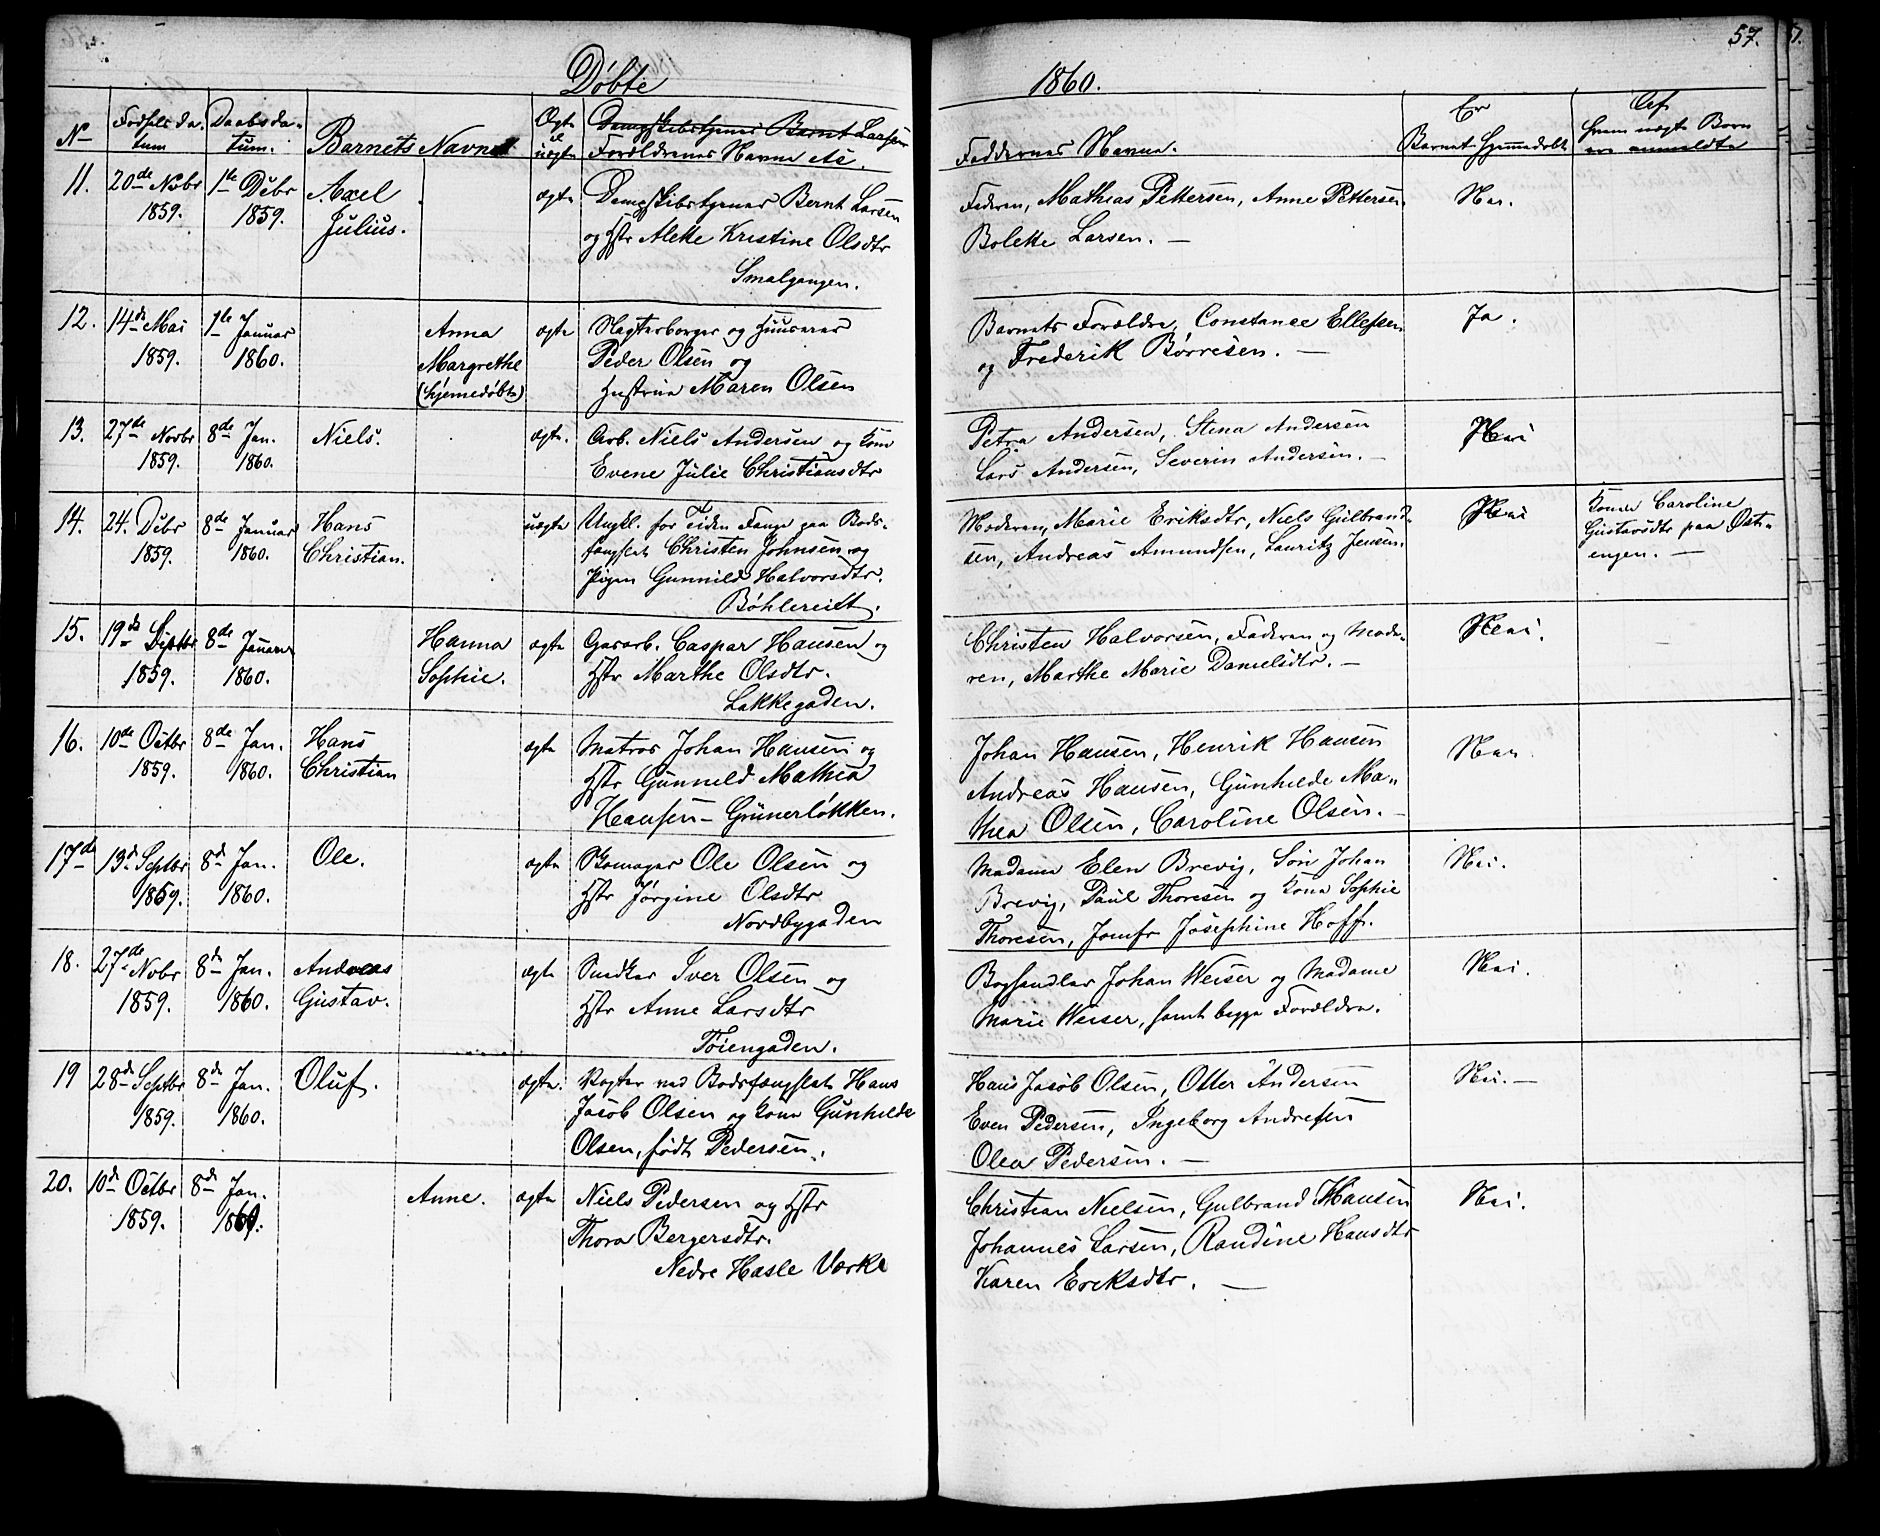 57.
Döbte
1860.
No
Fødsels da-
tum
Daabsda-
tum.
Barnets Navne
Ægte
el
uægte
Dampskibstjener Bernt Larsen
Forældrenes Navne etc.
Faddernes Navne.
Er
Barnet hjemmedøbt
Af
hvem uægte Børn
ere anmeldte
11. 20de Novbr 1ste Debr Axel ægte Dampskibstjener Bernt Larsen
1859. 1859. Julius. og Hstr Alette Kristine Olsdtr
Smalgangen.
Faderen, Mathias Pettersen, Anne Pettersen Nei.
Bolette Larsen. —
12. 14de Mai 1ste Januar Anna ægte Slagterborger og Huuseier
1859. 1860. Margrethe Peder Olsen og
(hjemedøbt) Hustrue Maren Olsen
Barnets Forældre, Constance Ellefsen Ja.
og Frederik Börresen. —
13. 27de Novbr 8de Jan. Niels. ægte. Arb. Niels Andersen og Kone
1859. 1860. Evene Julie Christiansdtr
Petra Andersen, Stena Andersen Nei
Lars Andersen, Severin Andersen. —
14. 24. Debr 8de Januar Hans uægte Ungkl. for Tiden Fange paa Bods-
1859. 1860. Christian. fængslet Christen Johnsen og
Pigen Gunnild Halvorsdtr.
Böhlereiet.
Moderen, Marie Eriksdtr, Niels Gulbrand- Nei Konen Caroline
sen, Andreas Amundsen, Lauritz Jensen. Gustavsdtr paa Øst-
engen. —
15. 19de Septbr 8de Januar Hanna ægte Gararb. Caspar Hansen og
1859. 1860. Sophie. Hstr Marthe Olsdtr.
Lakkegaden.
Christen Halvorsen, Faderen og Mode- Nei.
ren, Marthe Marie Danielsdtr. —
16. 10de Octbr 8de Jan. Hans ægte Matros Johan Hansen og
1859. 1860. Christian Hstr Gunneld Mathea
Hansen – Grünerløkken.
Johan Hansen, Henrik Hansen Nei
Andreas Hansen, Gunhilde Ma-
thea Olsen, Caroline Olsen. —
17de 13de Septbr 8de Jan. Ole. ægte Skomager Ole Olsen og
1859. 1860. Hstr Jörgine Olsdtr
Nordbygaden
Madame Elen Brevig, Søn Johan Nei.
Brevig, Paul Thoresen og Kone Sophie
Thoresen, Jomfr Josephine Hoff.
18. 27de Novbr 8de Jan. Andreas ægte Snedker Iver Olsen og
1859. 1860. Gustav. Hstr Anne Larsdtr
Töiengaden.
Boghandler Johan Weiser og Madame Nei.
Marie Weiser, samt begge Forældre.
19 28de Septbr 8de Jan. Oluf. ægte. Vogter ved Bodsfængslet Hans
1859. 1860. Jacob Olsen og Kone Gunhilde
Olsen, født Pedersen.
Hans Jacob Olsen, Otter Andersen Nei. —
Even Pedersen, Ingeborg Andresen
Olea Pedersen. —
20. 10de Octbr 8de Jan. Anne. ægte Niels Pedersen og Hstr
1859. 1860. Thora Bergersdtr.
Nedre Hasle Værk
Christian Nielsen, Gulbrand Hansen Nei.
Johannes Larsen, Randine Hansdtr
Karen Ericksdtr. —